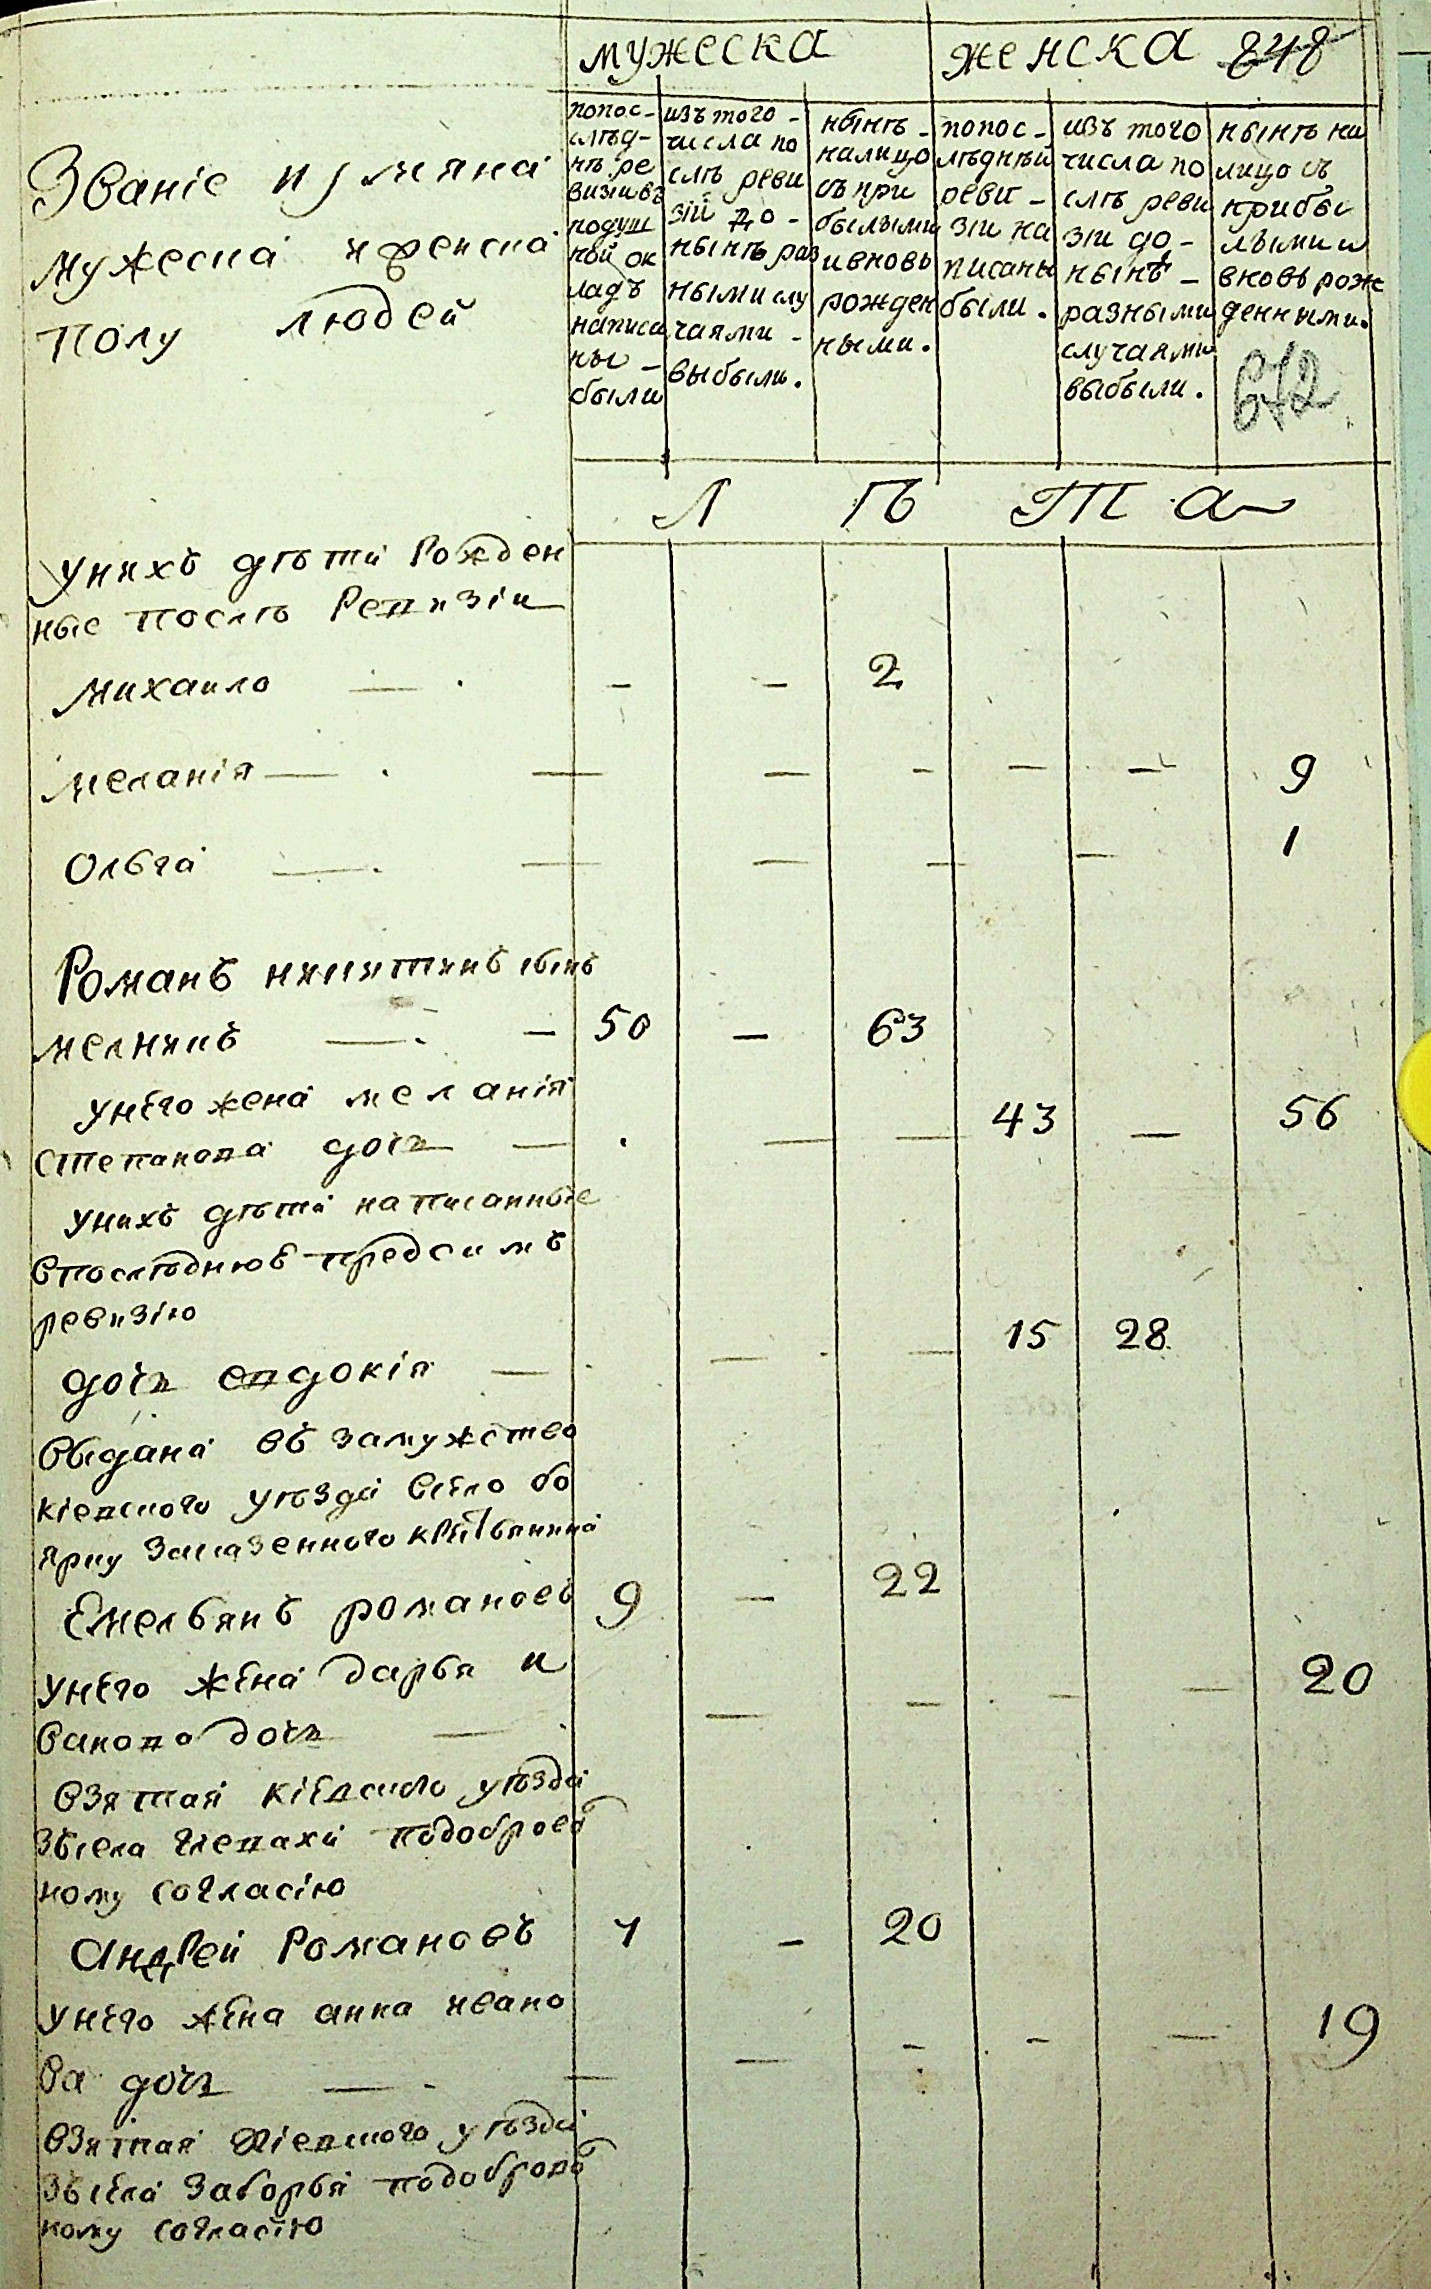 мужеска женска 848
Званіе и имяна
мужеска и женска
полу людей
попос-
лѣд-
нѣ ре
визии въ
подуш
ной ок
ладъ
написа
ны -
были
изъ того -
числа по
слѣ реви
зіи до -
нынѣ раз
ными слу
чаями -
выбыли.
нынѣ -
налицо
съ при
былыми
и вновь
рожден
ными.
попос -
лѣднѣй
реви -
зіи на
писаны
были.
изъ того
числа по
слѣ реви
зіи до -
нынѣ -
разными
случаями
выбыли.
нынѣ на
лицо съ
прибы
лыми и
вновь рож
денными.
672
Л Ѣ Т А
У нихъ дѣти рожден
ные послѣ ревизіи
Михаило — . - - 2
Меланія — . — — - — — 9
Ольга — . — — — — 1
Романъ Никитинъ сынъ
Мелникъ — . — 50 — 63
У него жена Меланія
Степанова дочь — . — — 43 — 56
У нихъ дѣти написанные
в последнюю предсимъ
ревизію
дочь Евдокія — — . — 15 28
Выдана въ замужство
кіевского уѣзда в село бо
ярку за казенного крестьянина
Емельянъ Романовъ 9 — 22
У него жена Дарья и
ванова дочь — — — — — 20
Взятая кіевского уѣзда
зъ села Глевахи по доброволь
ному согласію
Андрей Романовъ 7 - 20
У него жена Анна Ивано
ва дочь — . — — - - — 19
Взятая Кіевского уѣзда
зъ села Заборья по доброволь
ному согласію